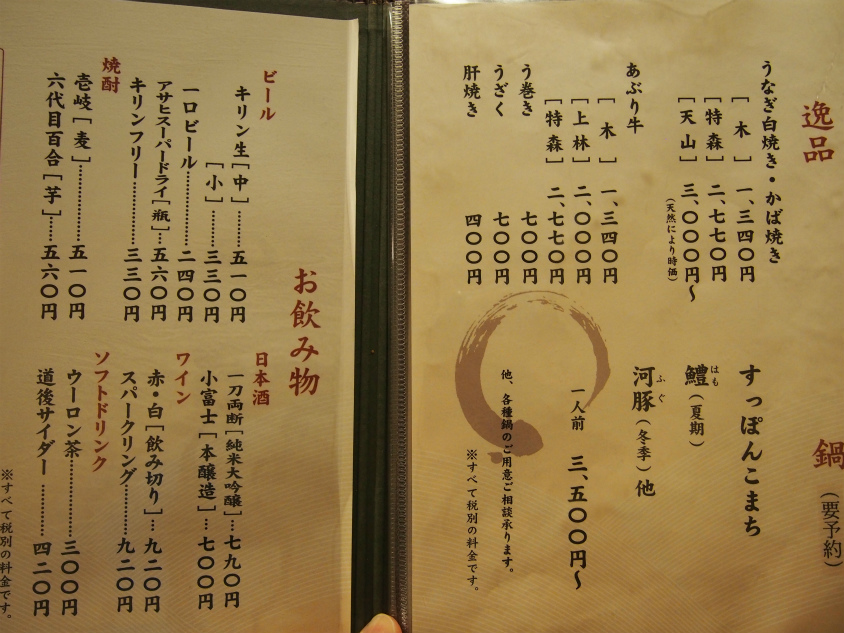 逸品
うなぎ白焼き・かば焼き
［木］ 一、三四〇円
［特森］ 二、七七〇円
［天山］ 三、〇〇〇円～
（天然により時価）
あぶり牛
［木］ 一、三四〇円
［上林］ 二、〇〇〇円
［特森］ 二、七七〇円
う巻き 七〇〇円
うざく 七〇〇円
肝焼き 四〇〇円
鍋（要予約）
すっぽんこまち
鱧（夏期）
はも
河豚（冬季）他
ふぐ
一人前 三、五〇〇円～
他、各種鍋のご用意ご相談承ります。
※すべて税別の料金です。
お飲み物
ビール
キリン生［中］………五一〇円
［小］………三三〇円
一口ビール…………二四〇円
アサヒスーパードライ［瓶］…五六〇円
キリンフリー…………三三〇円
焼酎
壱岐［麦］…………五一〇円
六代目百合［芋］……五六〇円
日本酒
一刀両断［純米大吟醸］…七九〇円
小富士［本醸造］…七〇〇円
ワイン
赤・白［飲み切り］…九二〇円
スパークリング………九二〇円
ソフトドリンク
ウーロン茶…………三〇〇円
道後サイダー…………四二〇円
※すべて税別の料金です。